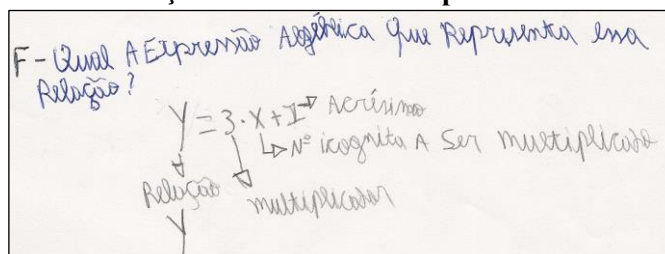 F - Qual A Expressão Algébrica que Representa essa
Relação?
Y = 3 · X + 1 → Acrésimo
↳ Nº icognita A Ser multiplicado
Relação
multiplicador
Y